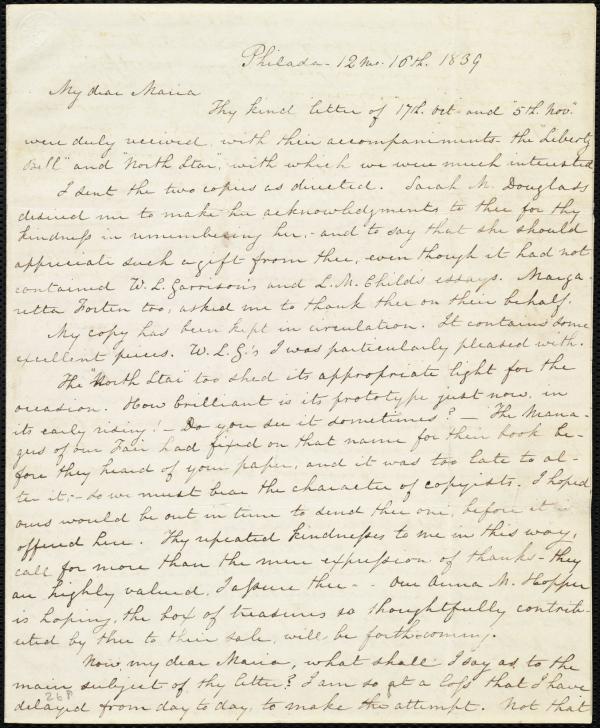 Philada- 12 Mo. 16th. 1839
My dear Maria
Thy kind letter of "17th. Oct. and "5th. Nov."
were duly received, with their accompaniments- the "Liberty
Bell" and "North Star", with which we were much interested.
I sent the two copies as directed. Sarah M. Douglass
desired me to make her acknowledgments to thee for thy
kindness in remembering her,- and to say that she should
appreciate such a gift from thee, even though it had not
contained W. L. Garrison's and L. M. Child's essays. Marga-
retta Forten too, asked me to thank thee on their behalf.
My copy has been kept in circulation. It contains some
excellent pieces. W. L. G.'s I was particularly pleased with.
The "North Star" too shed its appropriate light for the
occasion. How brilliant is its prototype just now, in
its early rising! - Do you see it sometimes? - The Mana-
gers of our Fair had fixed on that name for their book be-
fore they heard of your paper, and it was too late to al-
ter it;- so we must bear the character of copyists. I hoped
ours would be out in time to send thee one, before it is
offered here. Thy repeated kindnesses to me in this way,
call for more than the mere expression of thanks- they
are highly valued, I assure thee-. Our Anna M. Hopper
is hoping, the box of treasures so thoughtfully contrib-
uted by thee to their sale, will be forthcoming.
Now, my dear Maria, what shall I say as to the
main subject of thy letter? I am so at a loss that I have
delayed from day to day, to make the attempt. Not that